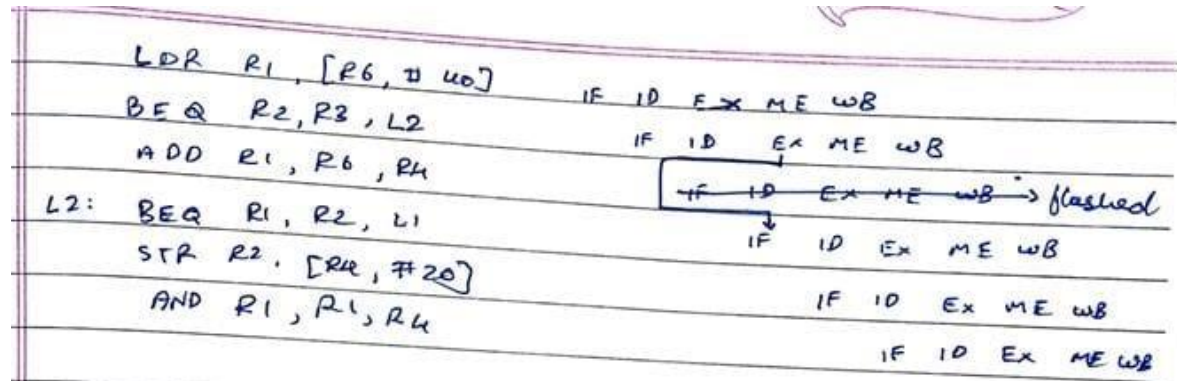 LDR R1, [R6, # 40] IF ID EX ME WB
BEQ R2, R3, L2 IF ID EX ME WB
ADD R1, R6, R4 IF ID EX ME WB → flashed
L2: BEQ R1, R2, L1 IF ID EX ME WB
STR R2, [R4, #20] IF ID EX ME WB
AND R1, R1, R4 IF ID EX ME WB